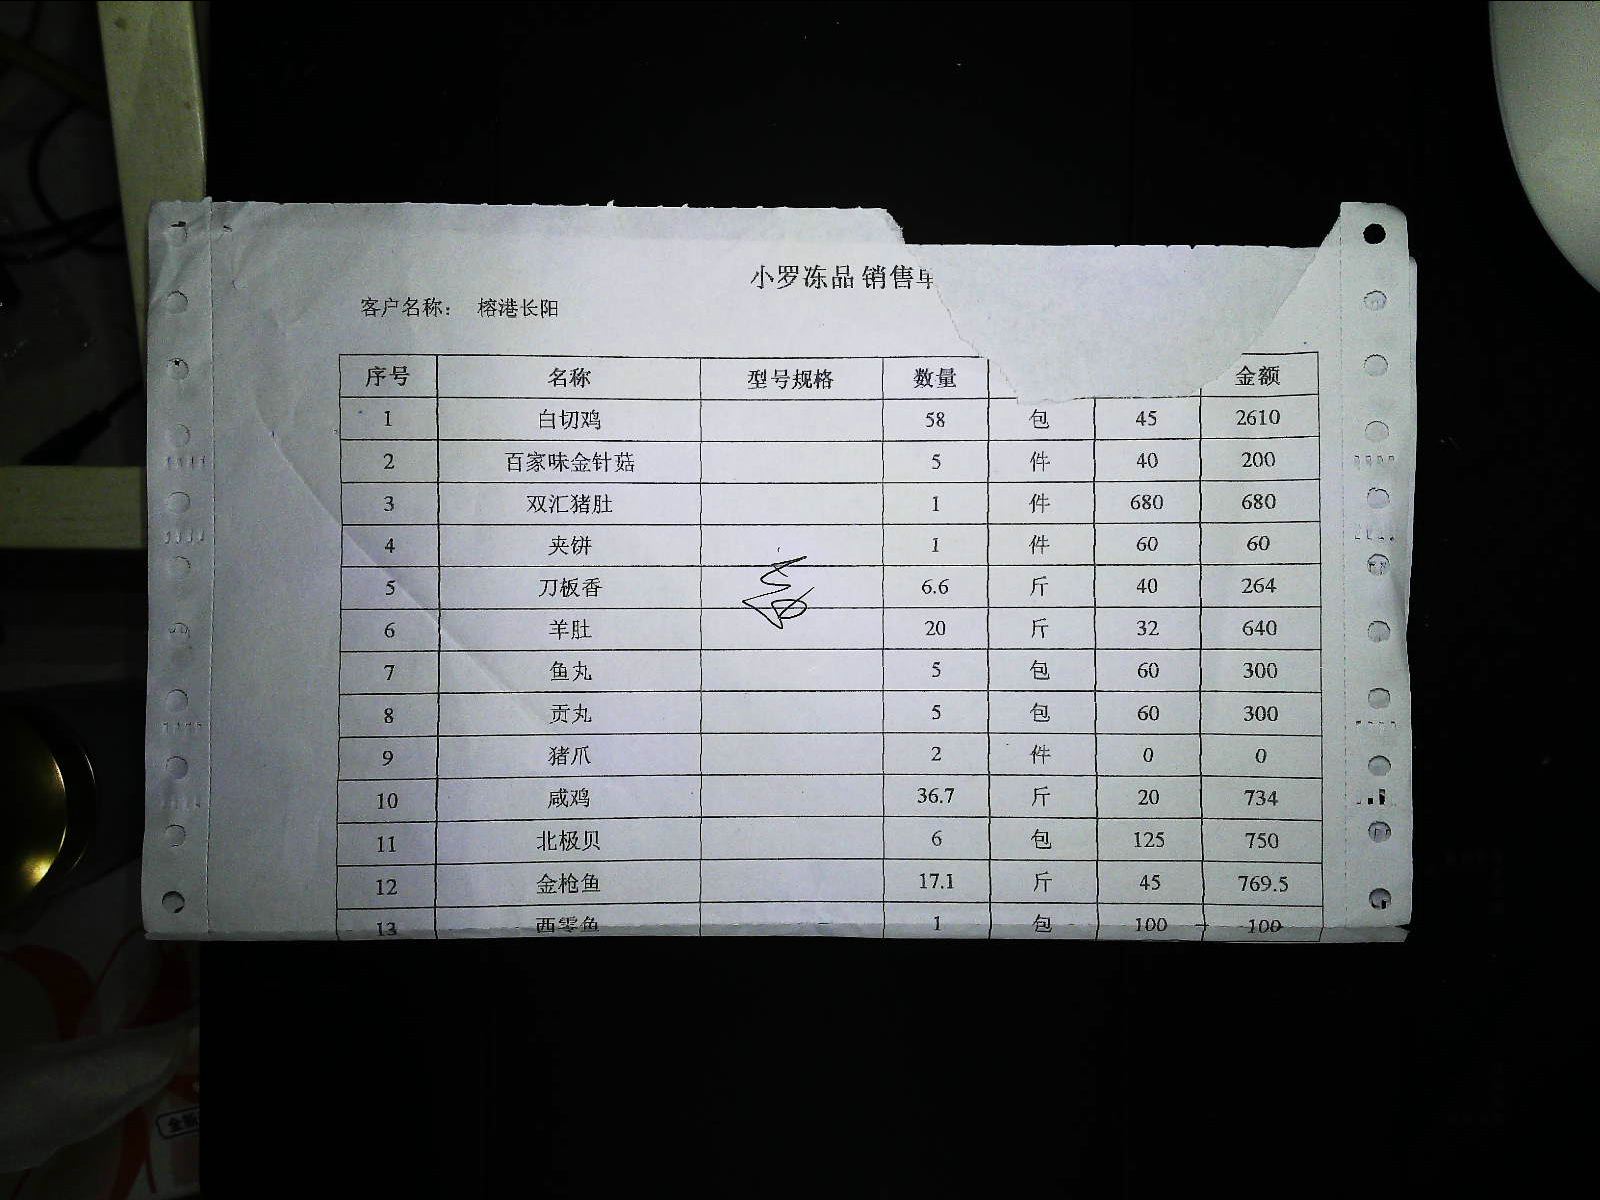 小罗冻品 销售单
客户名称： 榕港长阳
序号 名称 型号规格 数量 金额
1 白切鸡 58 包 45 2610
2 百家味金针菇 5 件 40 200
3 双汇猪肚 1 件 680 680
4 夹饼 1 件 60 60
5 刀板香 6.6 斤 40 264
6 羊肚 20 斤 32 640
7 鱼丸 5 包 60 300
8 贡丸 5 包 60 300
9 猪爪 2 件 0 0
10 咸鸡 36.7 斤 20 734
11 北极贝 6 包 125 750
12 金枪鱼 17.1 斤 45 769.5
13 西零鱼 1 包 100 100